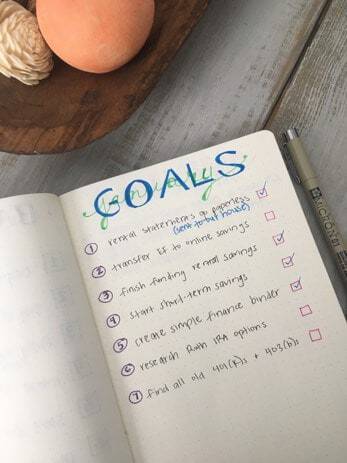 january
GOALS
1 rental statements go paperless
(sent to our house)
2 transfer EF to online savings
3 finish funding rental savings
4 start short-term savings
5 create simple finance binder
6 research Roth IRA options
7 find all old 401(k)s + 403(b)s
MICRON